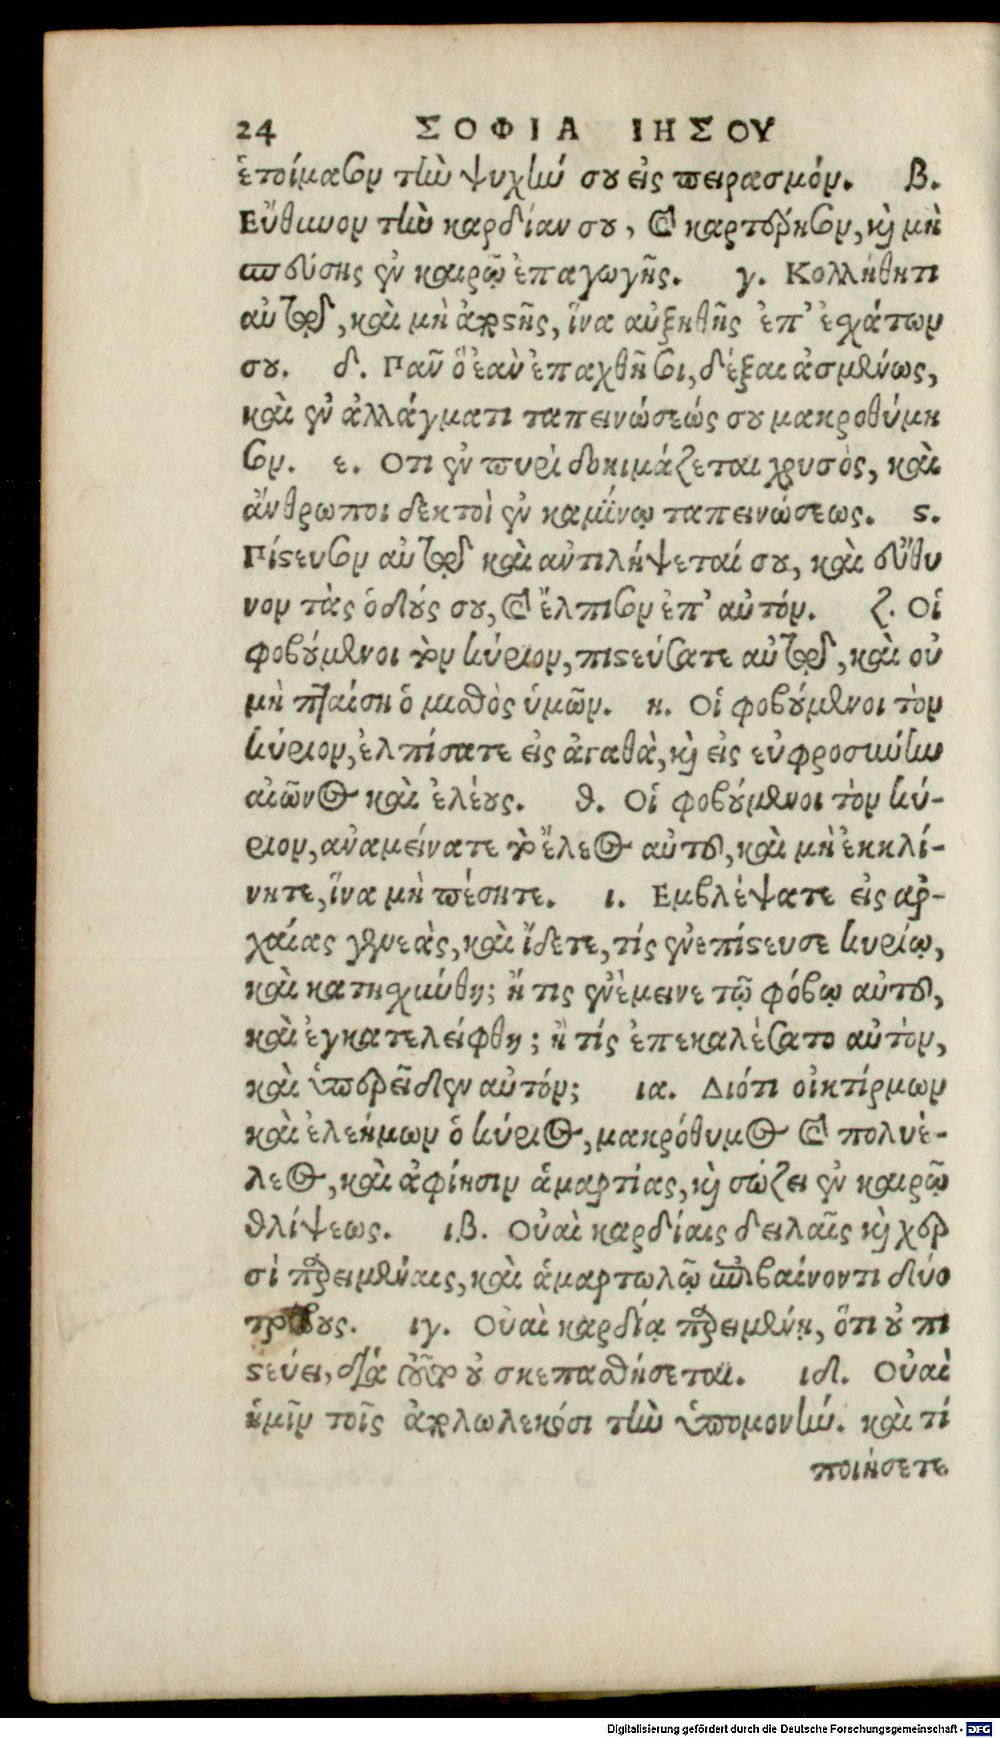 24 ΣΟΦΙΑ ΙΗΣΟΥ
ἑτοίμασον τὴν ψυχήν σου εἰς πειρασμόν. β.
Εὔθυνον τὴν καρδίαν σου, καὶ καρτέρησον, καὶ μὴ
σπεύσης ἐν καιρῷ ἐπαγωγῆς. γ. Κολλήθητι
αὐτῷ, καὶ μὴ ἀποστῆς, ἵνα αὐξηθῆς ἐπ' ἐσχάτων
σου. δ. Πᾶν ὃ ἐὰν ἐπαχθῆ σοι, δέξαι ἀσμένως,
καὶ ἐν ἀλλάγματι ταπεινώσεώς σου μακροθύμη
σον. ε. Οτι ἐν πυρὶ δοκιμάζεται χρυσὸς, καὶ
ἄνθρωποι δεκτοὶ ἐν καμίνῳ ταπεινώσεως. ϛ.
Πίστευσον αὐτῷ καὶ ἀντιλήψεταί σου, καὶ εὔθυ
νον τὰς ὁδούς σου, καὶ ἔλπισον ἐπ' αὐτόν. ζ. Οἱ
φοβούμενοι τὸν κύριον, πιστεύσατε αὐτῷ, καὶ οὐ
μὴ πταίση ὁ μισθὸς ὑμῶν. η. Οἱ φοβούμενοι τὸν
κύριον, ἐλπίσατε εἰς ἀγαθὰ, καὶ εἰς εὐφροσύνην
αἰῶνος καὶ ἐλέους. θ. Οἱ φοβούμενοι τὸν κύ-
ριον, ἀναμείνατε τὸ ἔλεος αὐτοῦ, καὶ μὴ ἐκκλί-
νητε, ἵνα μὴ πέσητε. ι. Εμβλέψατε εἰς ἀρ-
χαίας γενεὰς, καὶ ἴδετε, τίς ἐνεπίστευσε κυρίῳ,
καὶ κατησχύνθη; ἤ τις ἐνέμεινε τῷ φόβῳ αὐτοῦ,
καὶ ἐγκατελείφθη; ἢ τίς ἐπεκαλέσατο αὐτὸν,
καὶ ὑπερεῖδεν αὐτόν; ια. Διότι οἰκτίρμων
καὶ ἐλεήμων ὁ κύριος, μακρόθυμος καὶ πολυέ-
λεος, καὶ ἀφίησιν ἁμαρτίας, καὶ σώζει ἐν καιρῷ
θλίψεως. ιβ. Οὐαὶ καρδίαις δειλαῖς καὶ χερ
σὶ παρειμέναις, καὶ ἁμαρτωλῷ ἐπιβαίνοντι δύο
τρίβους. ιγ. Οὐαὶ καρδίᾳ παρειμένῃ, ὅτι οὐ πι
στεύει, διὰ τοῦτο οὐ σκεπασθήσεται. ιδ. Οὐαὶ
ὑμῖν τοῖς ἀπολωλεκόσι τὴν ὑπομονήν. καὶ τί
ποιήσετε
Digitalisierung gefördert durch die Deutsche Forschungsgemeinschaft - DFG